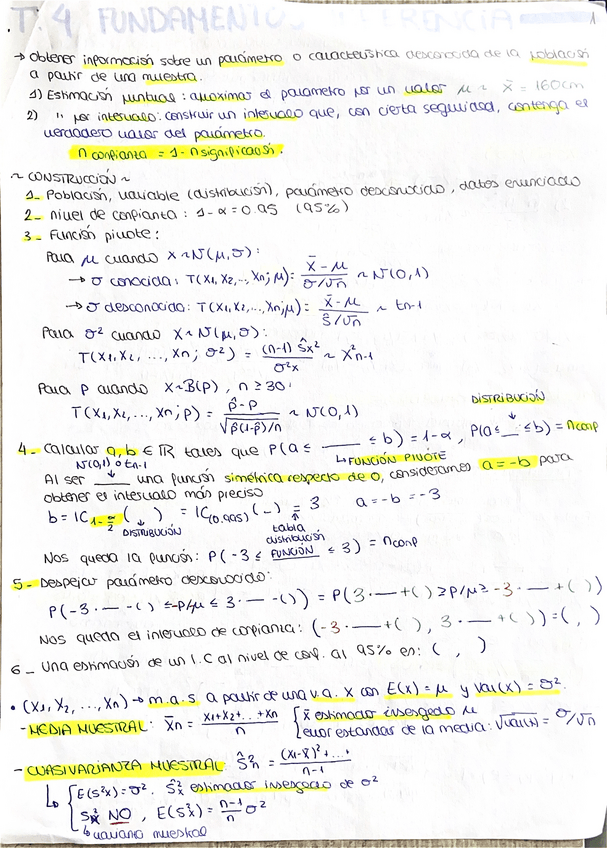 T 4 FUNDAMENTOS INFERENCIA 1
→ Obtener información sobre un parámetro o característica desconocida de la población
a partir de una muestra.
1) Estimación puntual: aproximar el parámetro por un valor μ ~ x̄ = 160cm
2) " por intervalo: construir un intervalo que, con cierta seguridad, contenga el
verdadero valor del parámetro.
n confianza = 1 - n significación.
~ CONSTRUCCIÓN ~
1_ Población, variable (distribución), parámetro desconocido, datos enunciado
2_ nivel de confianza: 1-α = 0.95 (95%)
3_ Función pivote:
Para μ cuando X~N(μ,σ):
→ σ conocida: T(x1,x2,...,xn;μ) = (x̄ - μ)/(σ/√n) ~ N(0,1)
→ σ desconocida: T(x1,x2,...,xn;μ) = (x̄-μ)/(Ŝ/√n) ~ tn-1
Para σ² cuando X~N(μ,σ):
T(x1,x2,...,xn; σ²) = (n-1) Ŝx² / σ²x ~ X²n-1
Para p cuando X~B(p), n ≥ 30:
T(x1,x2,...,xn;p) = (p̂-p)/√(p̂(1-p̂)/n) ~ N(0,1)
DISTRIBUCIÓN
4_ Calcular a,b ∈ ℝ tales que P(a ≤ ___ ≤ b) = 1-α, P(a≤ __ ≤b) = nconf
↳ FUNCIÓN PIVOTE
N(0,1) o tn-1
Al ser ___ una función simétrica respecto de 0, consideramos a=-b para
obtener el intervalo más preciso
b = IC1-α/2 ( ) = IC(0.995) (_) = 3 a=-b=-3
DISTRIBUCIÓN tabla distribución
Nos queda la función: P(-3 ≤ FUNCIÓN ≤ 3) = nconf
5_ Despejar parámetro desconocido:
P(-3·— -() ≤ -P/μ ≤ 3·— -()) = P(3·—+() ≥ P/μ ≥ -3·—+())
Nos queda el intervalo de confianza: (-3·—+(), 3·—+()) = ( , )
6_ Una estimación de un I.C al nivel de conf. al 95% en: ( , )
• (X1, X2, ..., Xn) → m.a.s a partir de una v.a. X con E(x) = μ y Var(x) = σ².
- MEDIA MUESTRAL: X̄n = (x1+x2+...+xn)/n { x̄ estimador insesgado μ
error estandar de la media: √var(x̄) = σ/√n
- CUASIVARIANZA MUESTRAL: Ŝ²n = ((x1-x̄)²+...)/(n-1)
↳ { E(Ŝ²x) = σ². Ŝ²x estimador insesgado de σ²
S²x NO, E(S²x) = (n-1)/n σ²
↳ varianza muestral